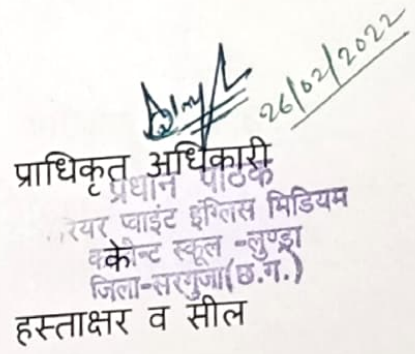 26/02/2022
प्राधिकृत अधिकारी
प्रधान पाठक
रियर प्वाइंट इंग्लिस मिडियम
स्कूल -लुण्ड्रा
जिला-सरगुजा(छ.ग.)
हस्ताक्षर व सील